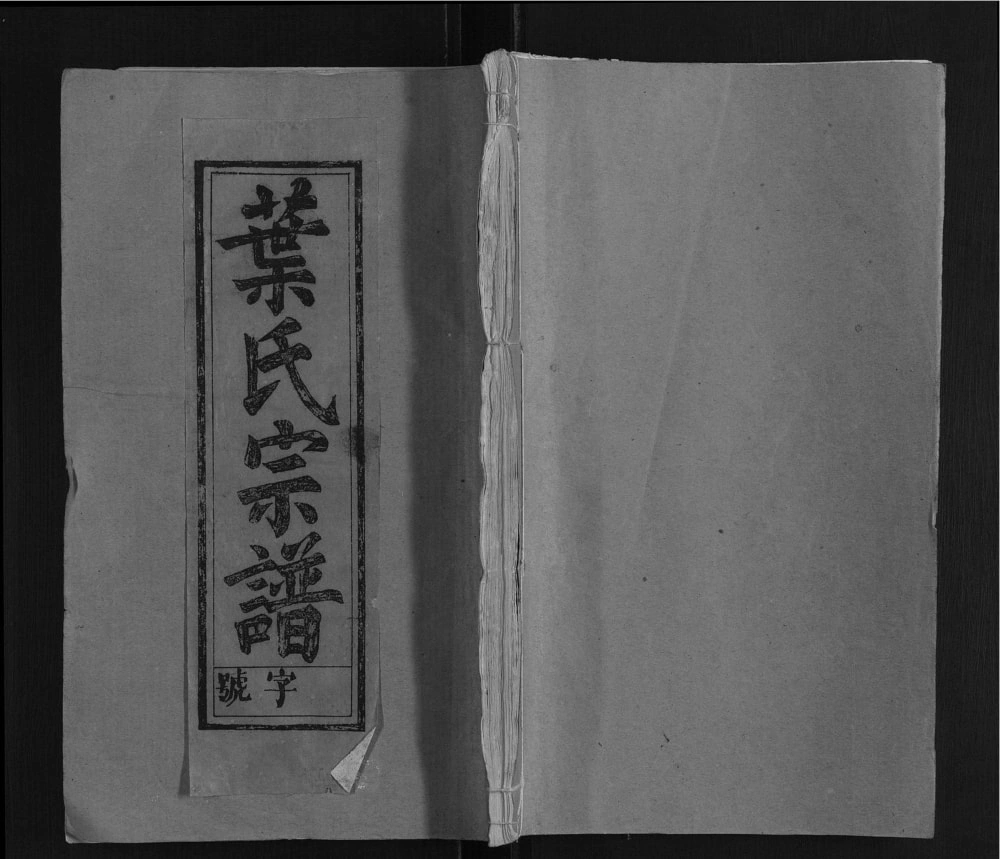 葉氏宗譜
字號